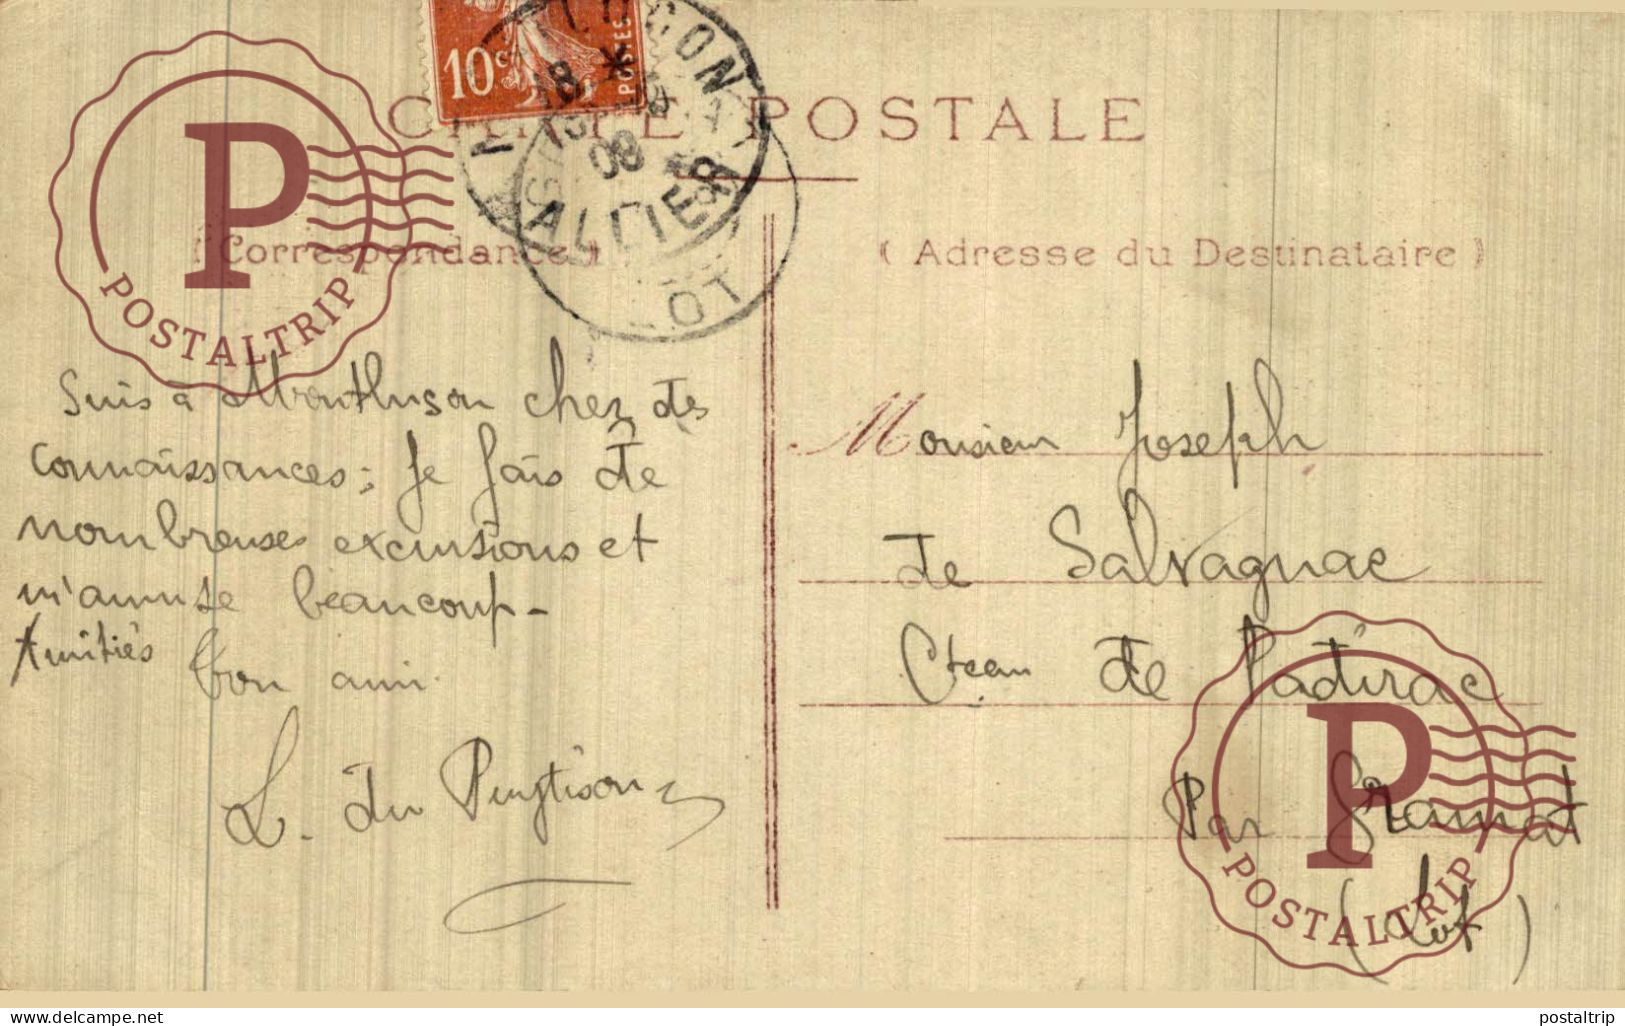 10c
POSTES
CARTE POSTALE
18
08
ALLIER
LOT
(Correspondance)
(Adresse du Destinataire)
P
POSTALTRIP
Suis à Montluson chez des
connaissances; je fais de
nombreuses excursions et
m'amuse beaucoup -
Amitiés Bon ami
L. du Puytison
Monsieur Joseph
de Salvagnac
Cteau de Padirac
Par Gramat
(Lot)
P
POSTALTRIP
www.delcampe.net
postaltrip